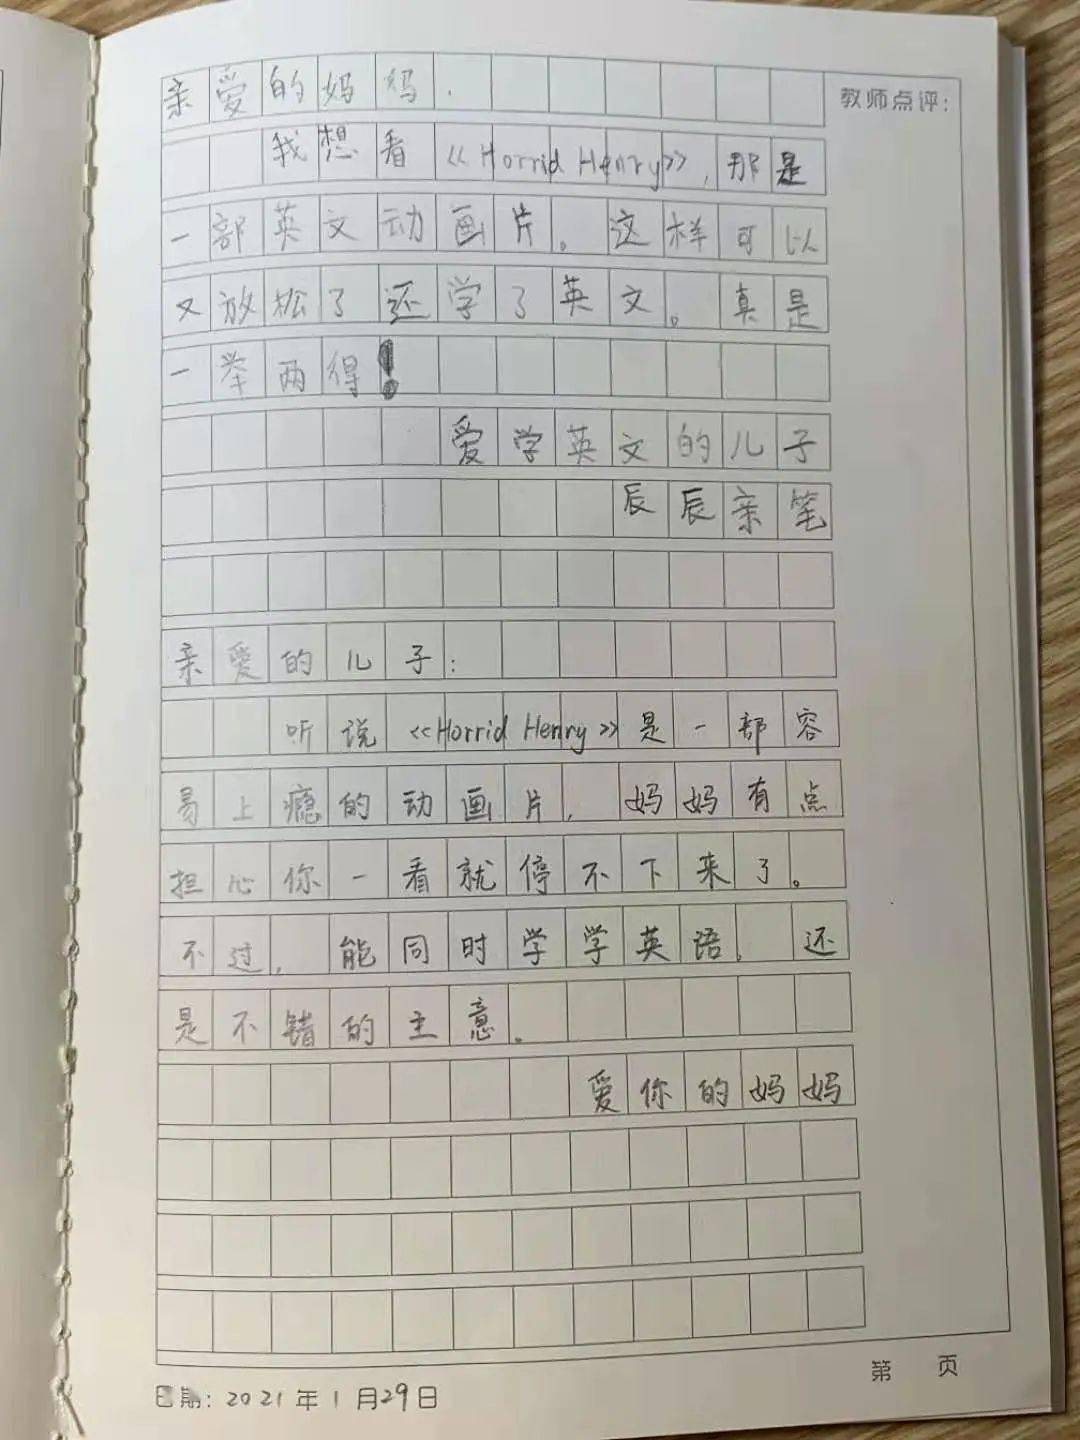 亲爱的妈妈.
教师点评:
我想看《Horrid Henry》,那是
一部英文动画片。这样可以
又放松了还学了英文。真是
一举两得!
爱学英文的儿子
辰辰亲笔
亲爱的儿子:
听说《Horrid Henry》是一部容
易上瘾的动画片,妈妈有点
担心你一看就停不下来了。
不过,能同时学学英语,还
是不错的主意。
爱你的妈妈
第 页
日期:2021年1月29日